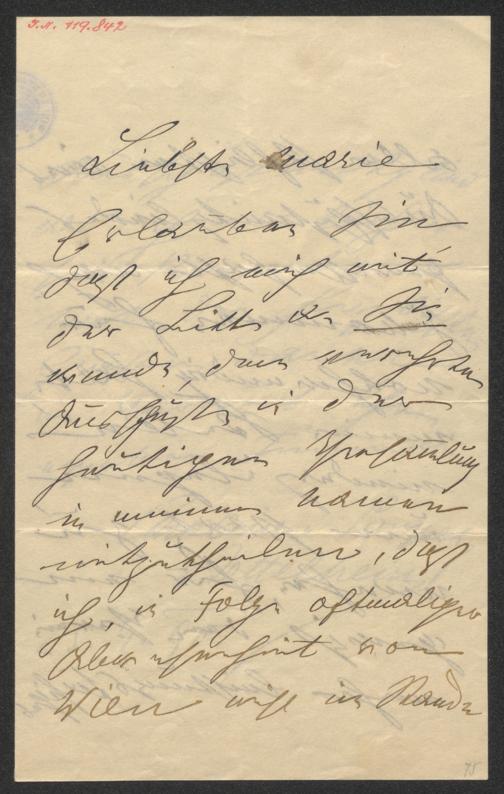 I.N. 119.842
Liebste Marie
Erlauben Sie
daß ich mich mit
der Bitte an Sie
wende, dem verehrten
Ausschuße in der
heutigen Versamlung
in meinem Namen
mitzutheilen, daß
ich, in Folge oftmaliger
Abwesenheit von
Wien nicht im Stande
75